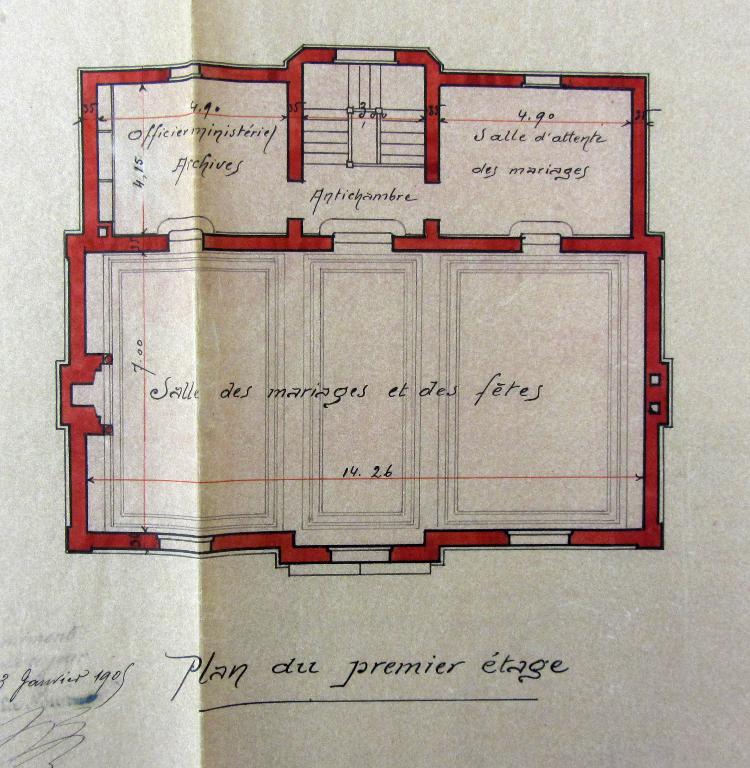 35
4.90
35
3.00
35
4.90
35
Officier ministériel
Archives
4,15
Salle d'attente
des mariages
Antichambre
35
7.00
Salle des mariages et des fêtes
14.26
35
Plan du premier étage
3 Janvier 1905